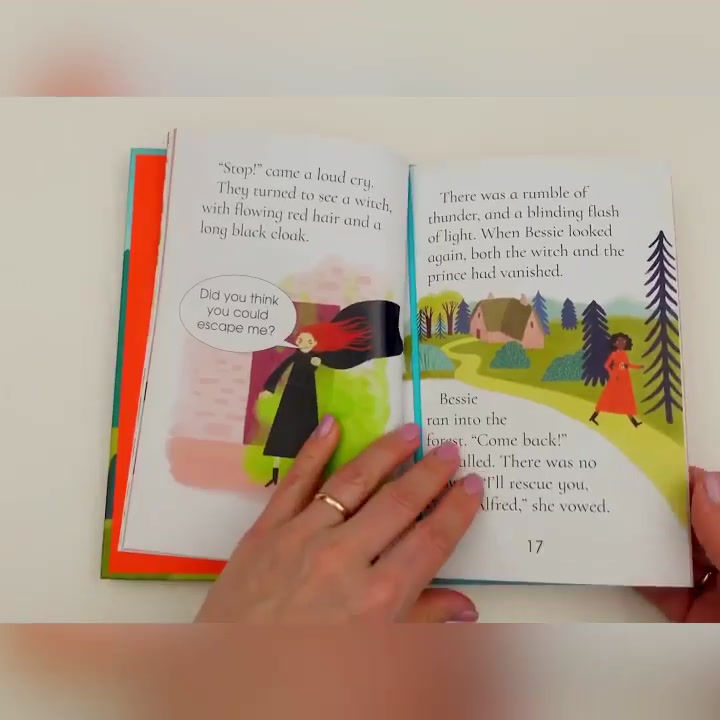 “Stop!” came a loud cry.
They turned to see a witch,
with flowing red hair and a
long black cloak.
Did you think
you could
escape me?
There was a rumble of
thunder, and a blinding flash
of light. When Bessie looked
again, both the witch and the
prince had vanished.
Bessie
ran into the
forest. “Come back!”
There was no
“I’ll rescue you,
Alfred,” she vowed.
17